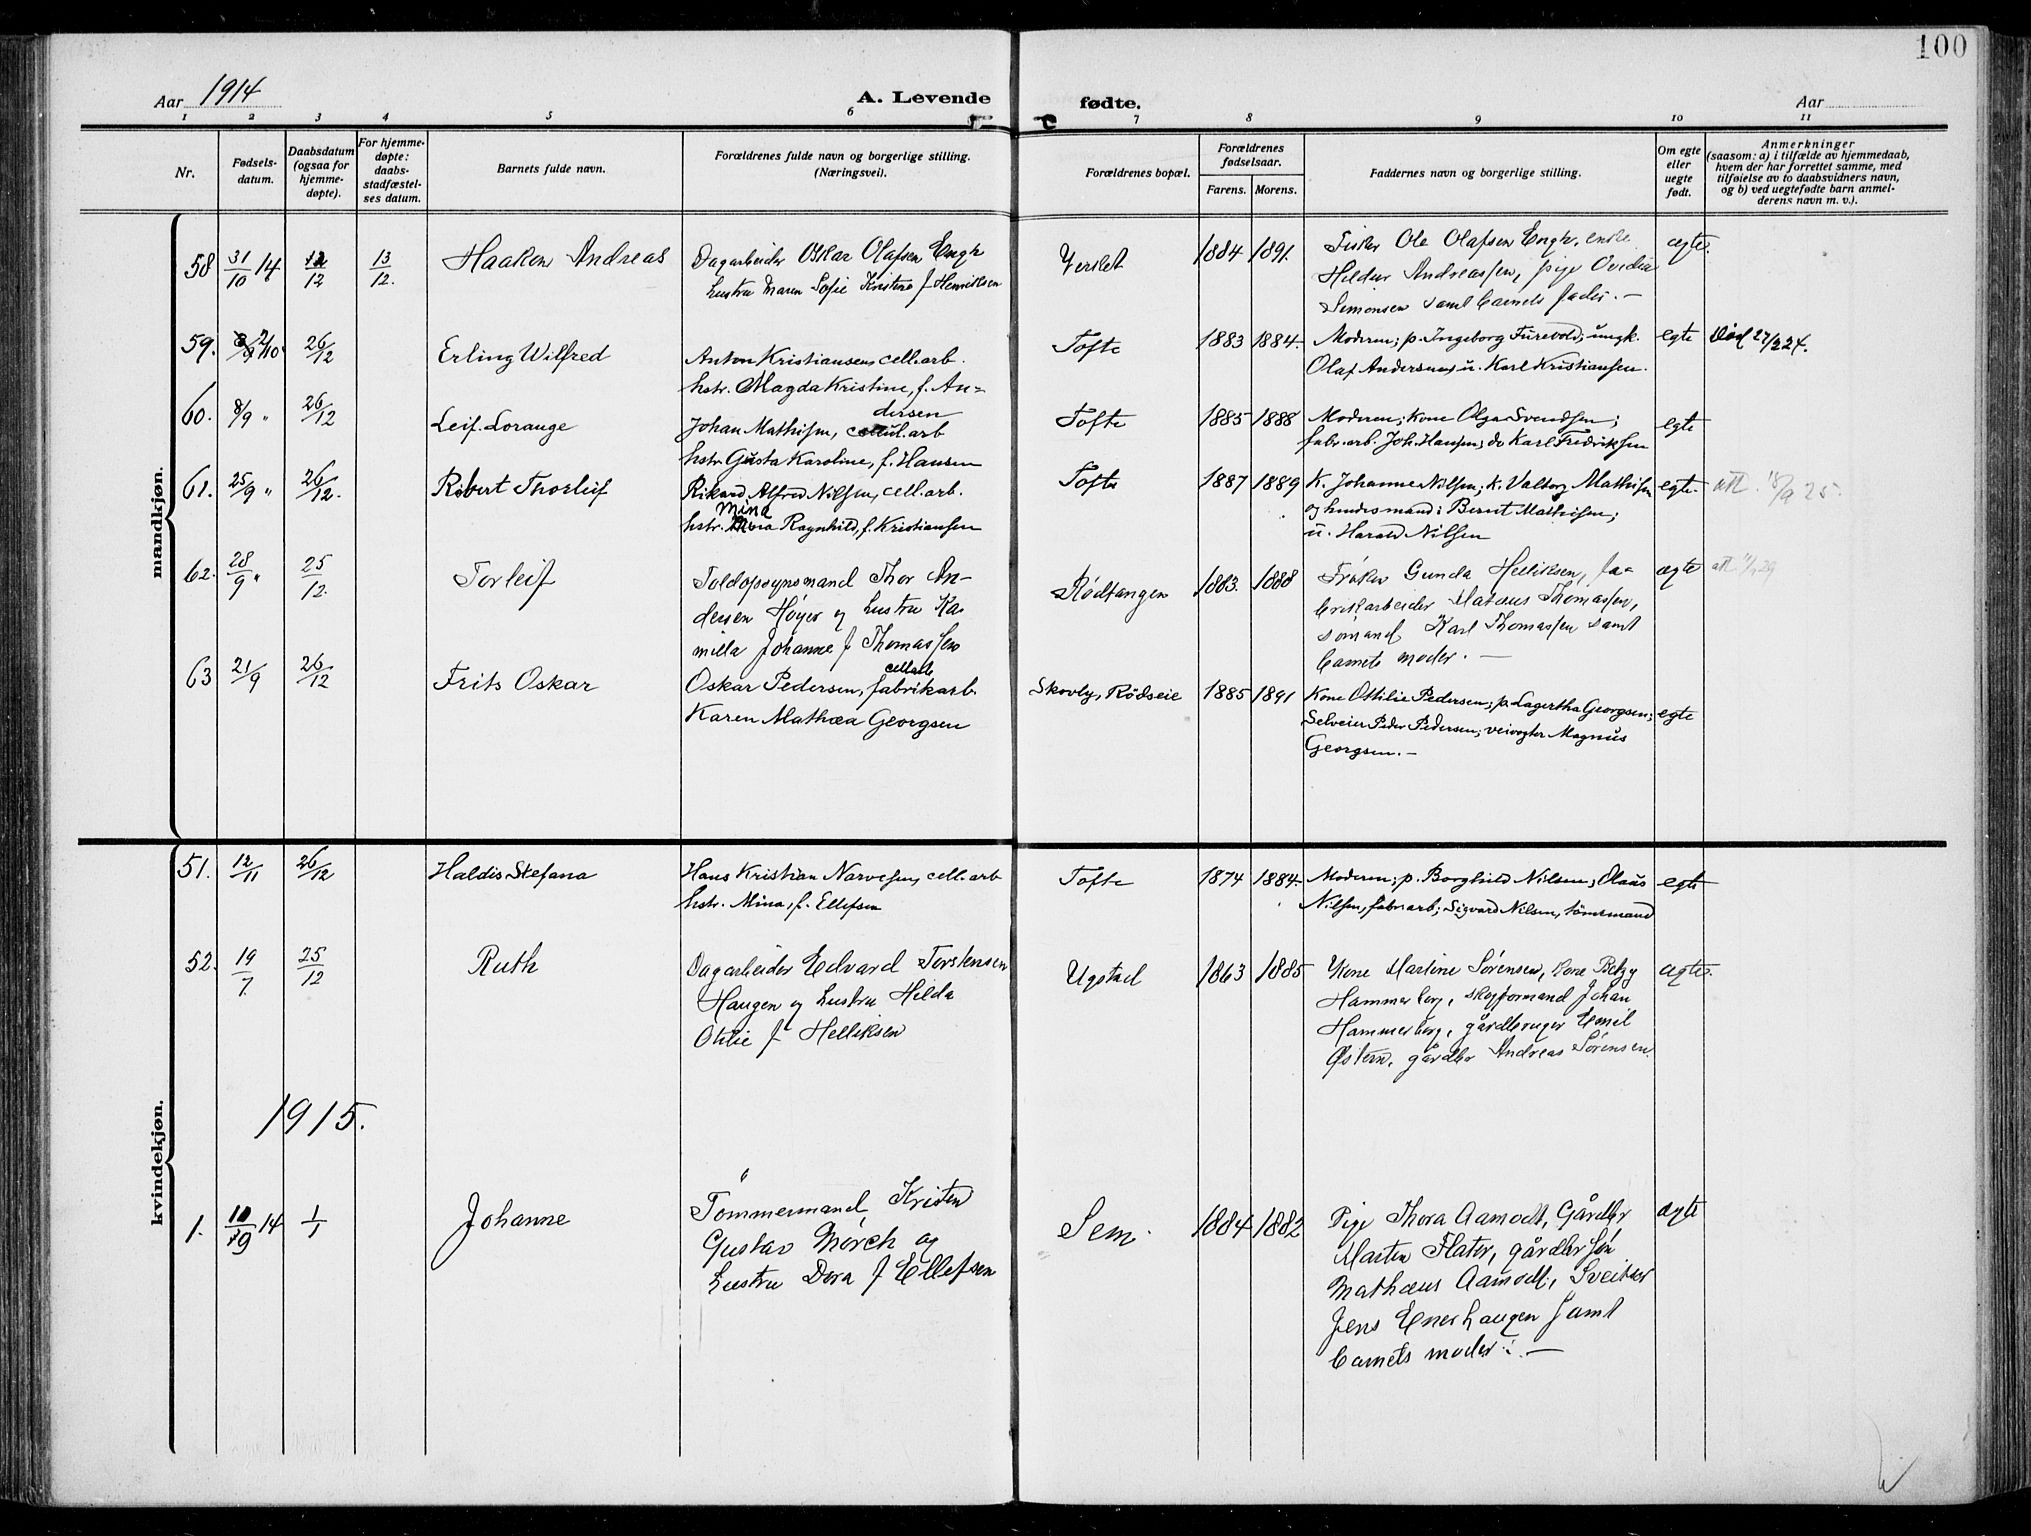 100
Aar 1914
A. Levende
fødte.
Aar
1 2 3 4 5 6 7 8 9 10 11
Nr.
Fødsels-
datum.
Daabsdatum
(ogsaa for
hjemme-
døpte).
For hjemme-
døpte:
daabs-
stadfæstel-
ses datum.
Barnets fulde navn.
Forældrenes fulde navn og borgerlige stilling.
(Næringsvei).
Forældrenes bopæl.
Forældrenes
fødselsaar.
Farens. Morens.
Faddernes navn og borgerlige stilling.
Om egte
eller
uegte
født.
Anmerkninger
(saasom: a) i tilfælde av hjemmedaab,
hvem der har forrettet samme, med
tilføielse av to daabsvidners navn,
og b) ved uegtefødte barn anmel-
derens navn m. v.).
mandkjøn.
58 31/10 14 12/12 13/12. Haakon Andreas
Dagarbeider Oskar Olafsen Engh
hustru Maren Sofie Kristine f Henriksen
Verslet 1884 1891.
Fisker Ole Olafsen Engh,
Hildur Andreassen, pige Ovidia
Simonsen samt barnets fader. —
ægte.
59. 2/10. 26/12 Erling Wilfred
Anton Kristiansen, cell.arb.
hstr. Magda Kristine, f. An=
dersen
Tofte 1883 1884.
Moderen; p. Ingeborg Furevold; ungk.
Olaf Andersen; u. Karl Kristiansen.
egte
Død 27/2 24.
60. 8/9 " 26/12 Leif Lorange
Johan Mathisen, cellul.arb
hstr. Gusta Karoline, f. Hansen
Tofte 1885 1888
Moderen; Kone Olga Svendsen;
fabr.arb. Joh. Hansen; do Karl Fredriksen
egte
61. 25/9 " 26/12. Robert Thorleif
Rikard Alfred Nilsen, cell.arb.
Mina
hstr. Ragnhild, f. Kristiansen
Tofte 1887 1889
K. Johanne Nilsen; k. Valborg Mathisen
og hendes mand: Bernt Mathisen;
u. Harald Nilsen
egte.
att. 18/9 25.
62. 28/9 " 25/12. Torleif
Toldopsynsmand Thor An-
dersen Høyer og hustru Ka-
milla Johanne f Thomassen
Rødtangen 1883. 1888
Frøken Gunda Helliksen, fa-
brikarbeider Matæus Thomassen,
sømand Karl Thomassen samt
barnets moder. —
ægte
63 21/9 26/12 Frits Oskar
Oskar Pedersen, fabrikarb.
Karen Mathæa Georgsen
Skovly, Rødseie 1885 1891
Kone Ottilie Pedersen; p. Lagertha Georgsen;
Selveier Peder Pedersen; veivogter Magnus
Georgsen. —
egte
kvindekjøn.
51. 12/11 26/12 Haldis Stefana
Hans Kristian Narvesen, cell.arb
hstr. Mina, f. Ellefsen
Tofte 1874 1884.
Moderen; p. Borghild Nilsen; Olaus
Nilsen, fabr.arb; Sigvard Nilsen, tømsmand
egte
52. 19/7. 25/12 Ruth
Dagarbeider Edvard Torstensen
Haugen og hustru Hilda
Otilie f Helliksen
Ugstad 1863 1885
Kone Martine Sørensen, kone Betzy
Hammerborg, skogformand Johan
Hammerborg, gårdbruger Emil
Østern, gårdbr Andreas Sørensen.
ægte.
1915.
1. 10/9 14 1/1 Johanne
Tømmermand Kristen
Gustav Mørch og
hustru Dora f Ellefsen
Sem. 1884 1882
Pige Thora Aamodt, Gårdbr
Marten Flater, gårdbr søn
Mathæus Aamodt, Sveitser
Jens Enerhaugen samt
barnets moder. —
ægte